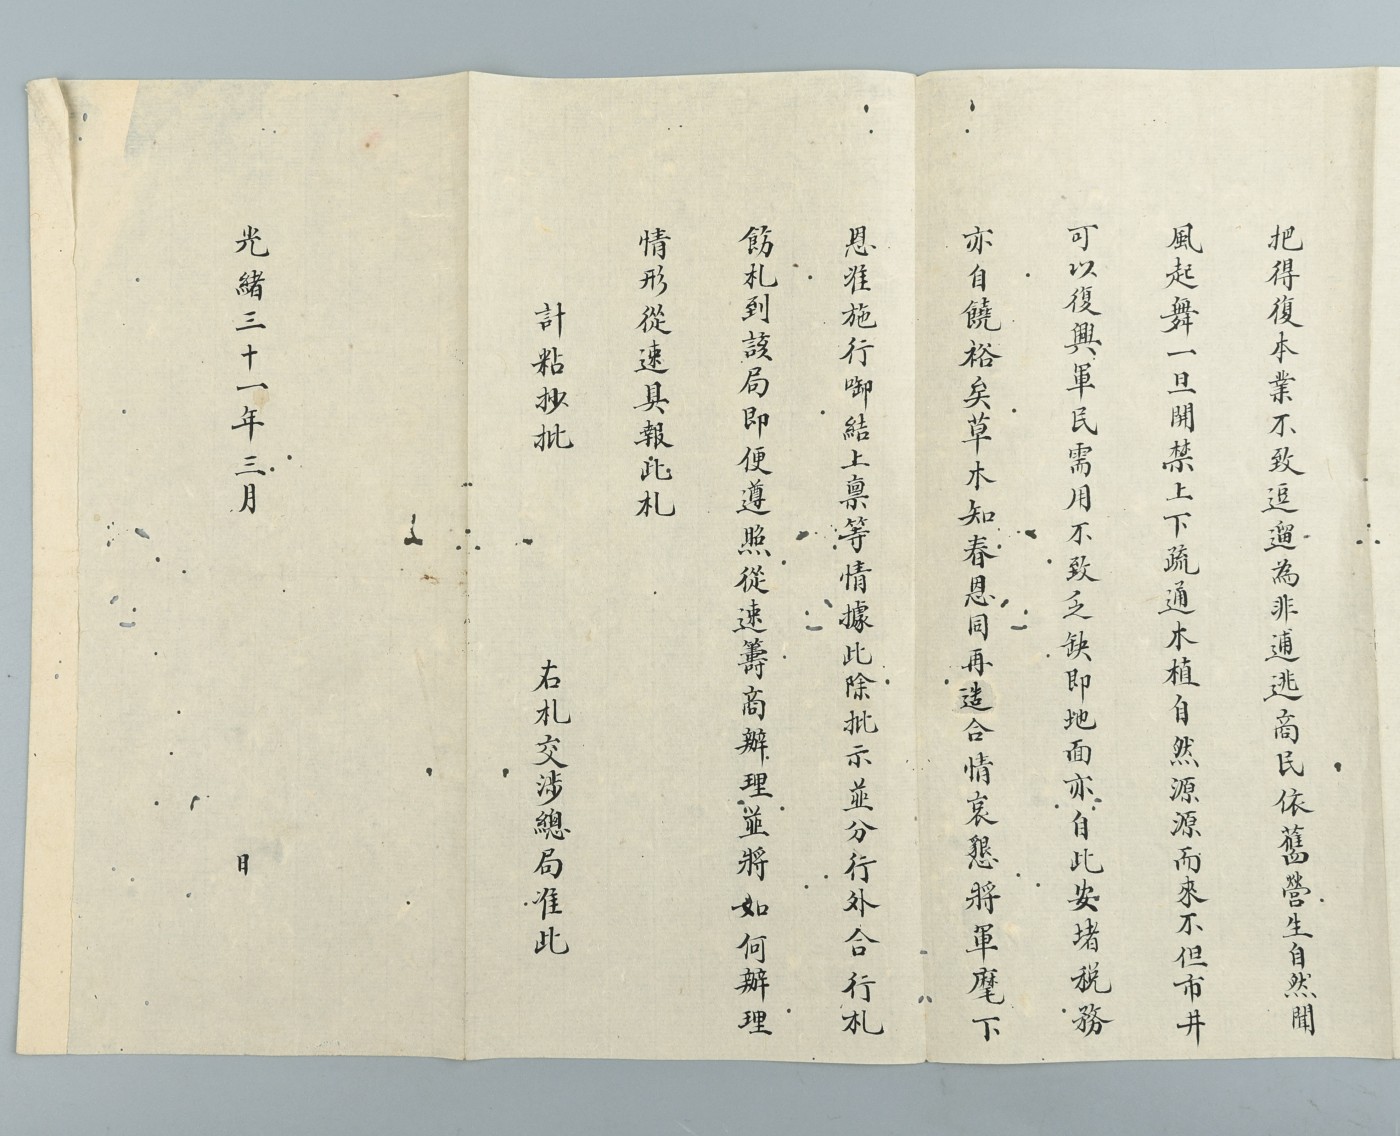 把得復本業不致逗遛為非逋逃商民依舊營生自然聞
風起舞一旦開禁上下疏通木植自然源源而來不但市井
可以復興軍民需用不致乏缺即地面亦自此安堵稅務
亦自饒裕矣草木知春恩同再造合情哀懇將軍麾下
恩准施行啣結上稟等情據此除批示並分行外合行札
飭札到該局即便遵照從速籌商辦理並將如何辦理
情形從速具報此札
計粘抄批
右札交涉總局准此
光緒三十一年三月 日